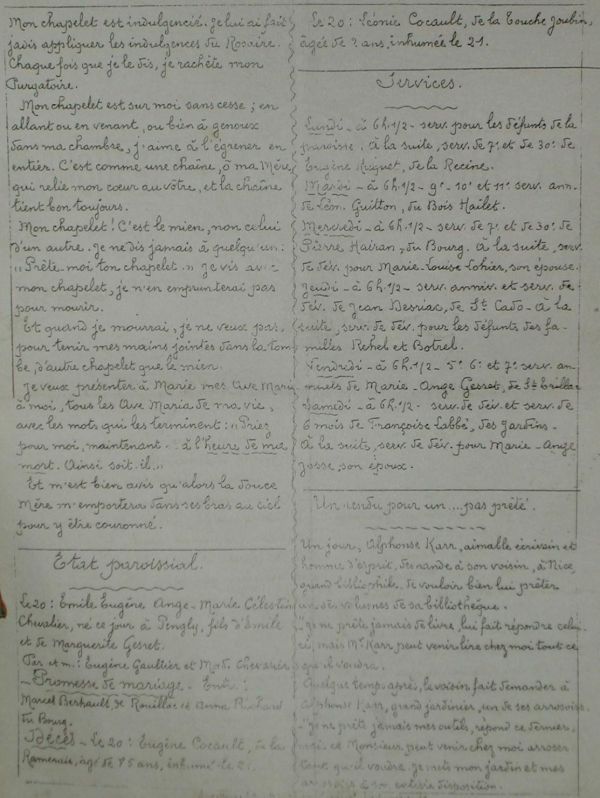 Mon chapelet est indulgencié. Je lui ai fait
jadis appliquer les indulgences du Rosaire.
Chaque fois que je le dis, je rachète mon
Purgatoire.
Mon chapelet est sur moi sans cesse ; en
allant ou en venant, ou bien à genoux
dans ma chambre, j'aime à l'égrener en
entier. C'est comme une chaîne, ô ma Mère
qui relie mon cœur au vôtre, et la chaîne
tient bon toujours.
Mon chapelet ! C'est le mien, non celui
d'un autre. Je ne dis jamais à quelqu'un :
"Prête-moi ton chapelet." Je vis avec
mon chapelet, je n'en emprunterai pas
pour mourir.
Et quand je mourrai, je ne veux pas,
pour tenir mes mains jointes dans la tom-
be, d'autre chapelet que le mien.
Je veux présenter à Marie mes Ave Maria
à moi, tous les Ave Maria de ma vie,
avec les mots qui les terminent : "Priez
pour moi, maintenant à l'heure de ma
mort. Ainsi soit-il."
Et m'est bien avis qu'alors la douce
Mère m'emportera dans ses bras au ciel
pour y être couronné.
Etat paroissial.
Le 20 : Emile Eugène Ange-Marie Célestin
Chevalier, né ce jour à Pengly, fils d'Emile
et de Marguerite Gesret.
Par et m. : Eugène Gaultier et Mad. Chevalier
Promesse de mariage. Entre :
Marcel Berhault de Rouillac et Anna Richard
du Bourg.
Décès - Le 20 : Eugène Cocault, de la
Ramerais, âgé de 85 ans, inhumé le 21.
Le 20 : Léonie Cocault, de la Touche Joubin,
âgée de 2 ans, inhumée le 21.
Services.
Lundi - à 6h.1/2 - serv. pour les défunts de la
paroisse. A la suite, serv. de 7e et de 30e de
Eugène Huguet, de la Recine.
Mardi - à 6h.1/2 - 9e - 10e et 11e serv. ann.
de Léon. Guitton, du Bois Hailet.
Mercredi - à 6h.1/2 - serv. de 7e et de 30e de
Pierre Hairan, du Bourg. A la suite, serv.
de dév. pour Marie-Louise Lohier, son épouse.
Jeudi - à 6h.1/2 - serv. anniv. et serv. de
dév. de Jean Desriac, de St Cado - à la
suite, serv. de dév. pour les défunts des fa-
milles Rehel et Botrel.
Vendredi - à 6h.1/2 - 5e 6e et 7e serv. an-
nuels de Marie-Ange Gesret, de St
Samedi - à 6h.1/2 - serv. de dév. et serv. de
6 mois de Françoise Labbé, des Jardins.
A la suite, serv. de dév. pour Marie-Ange
Josse, son époux.
Un rendu pour un .... pas prêté.
Un jour, Alphonse Karr, aimable écrivain et
homme d'esprit, demande à son voisin, à Nice,
grand bibliophile de vouloir bien lui prêter
un des volumes de sa bibliothèque.
"Je ne prête jamais de livre, lui fait répondre celui-
ci, mais Mr Karr peut venir lire chez moi tout ce
que il voudra.
Quelque temps après, le voisin fait demander à
Alphonse Karr, grand jardinier, un de ses arrosoirs.
"Je ne prête jamais mes outils, répond ce dernier,
mais ce Monsieur peut venir chez moi arroser
tant qu'il voudra. Je mets mon jardin et mes
arrosoirs à son entière disposition.